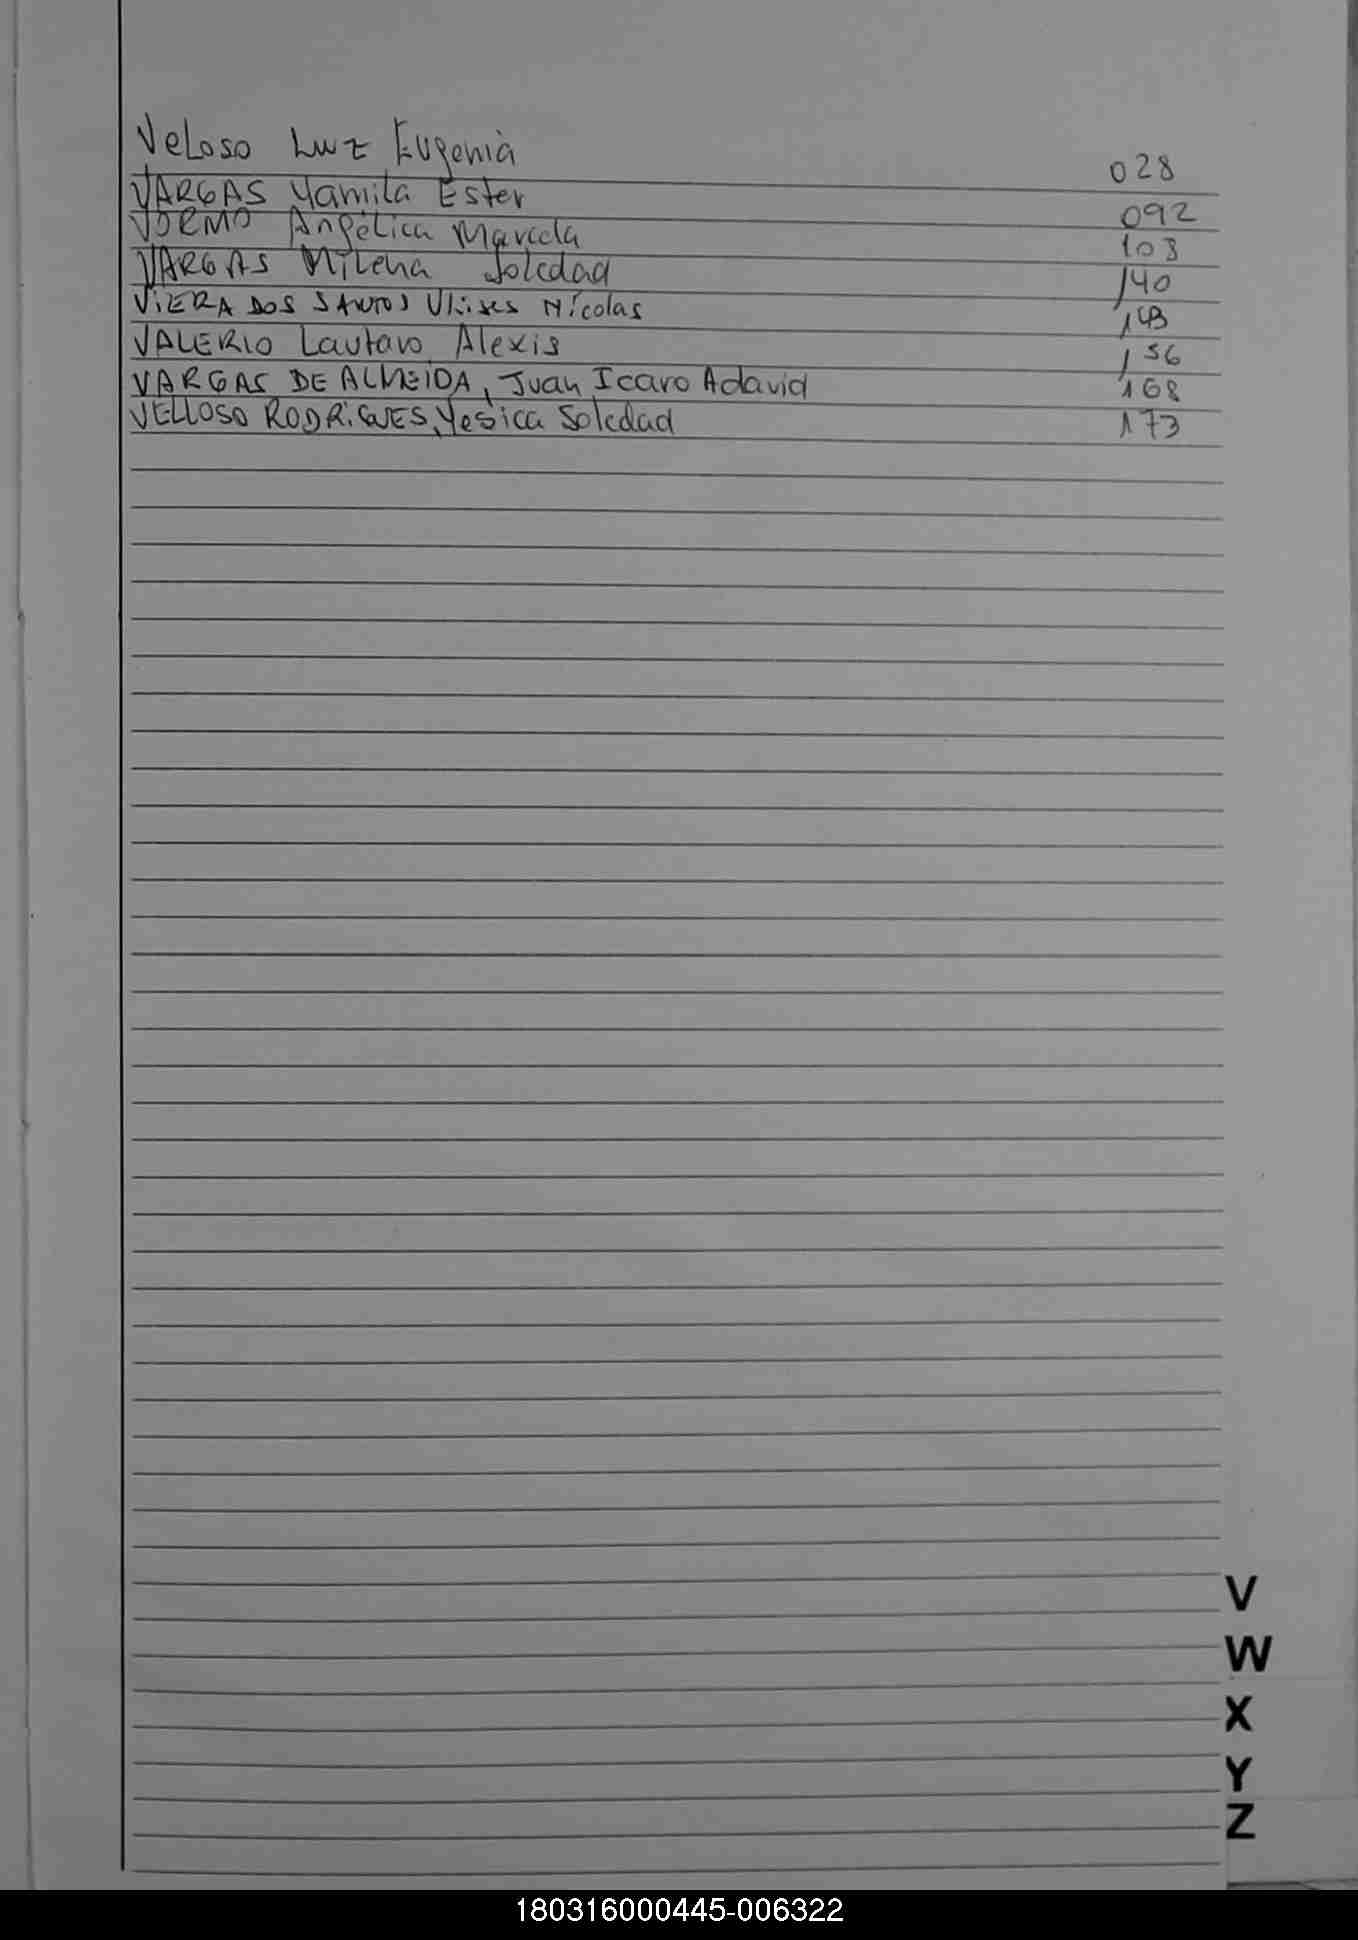 Veloso Luz Eugenia 028
VARGAS Yamila Ester 092
Angélica Marcela 103
VARGAS Milena Soledad 140
ViERA DOS SANTOS Ulises Nícolas 143
VALERIO Lautaro Alexis 156
VARGAS DE ALMEIDA, Juan Icaro Adavid 168
VELLOSO RODRiGUES, Yesica Soledad 173
V
W
X
Y
Z
180316000445-006322